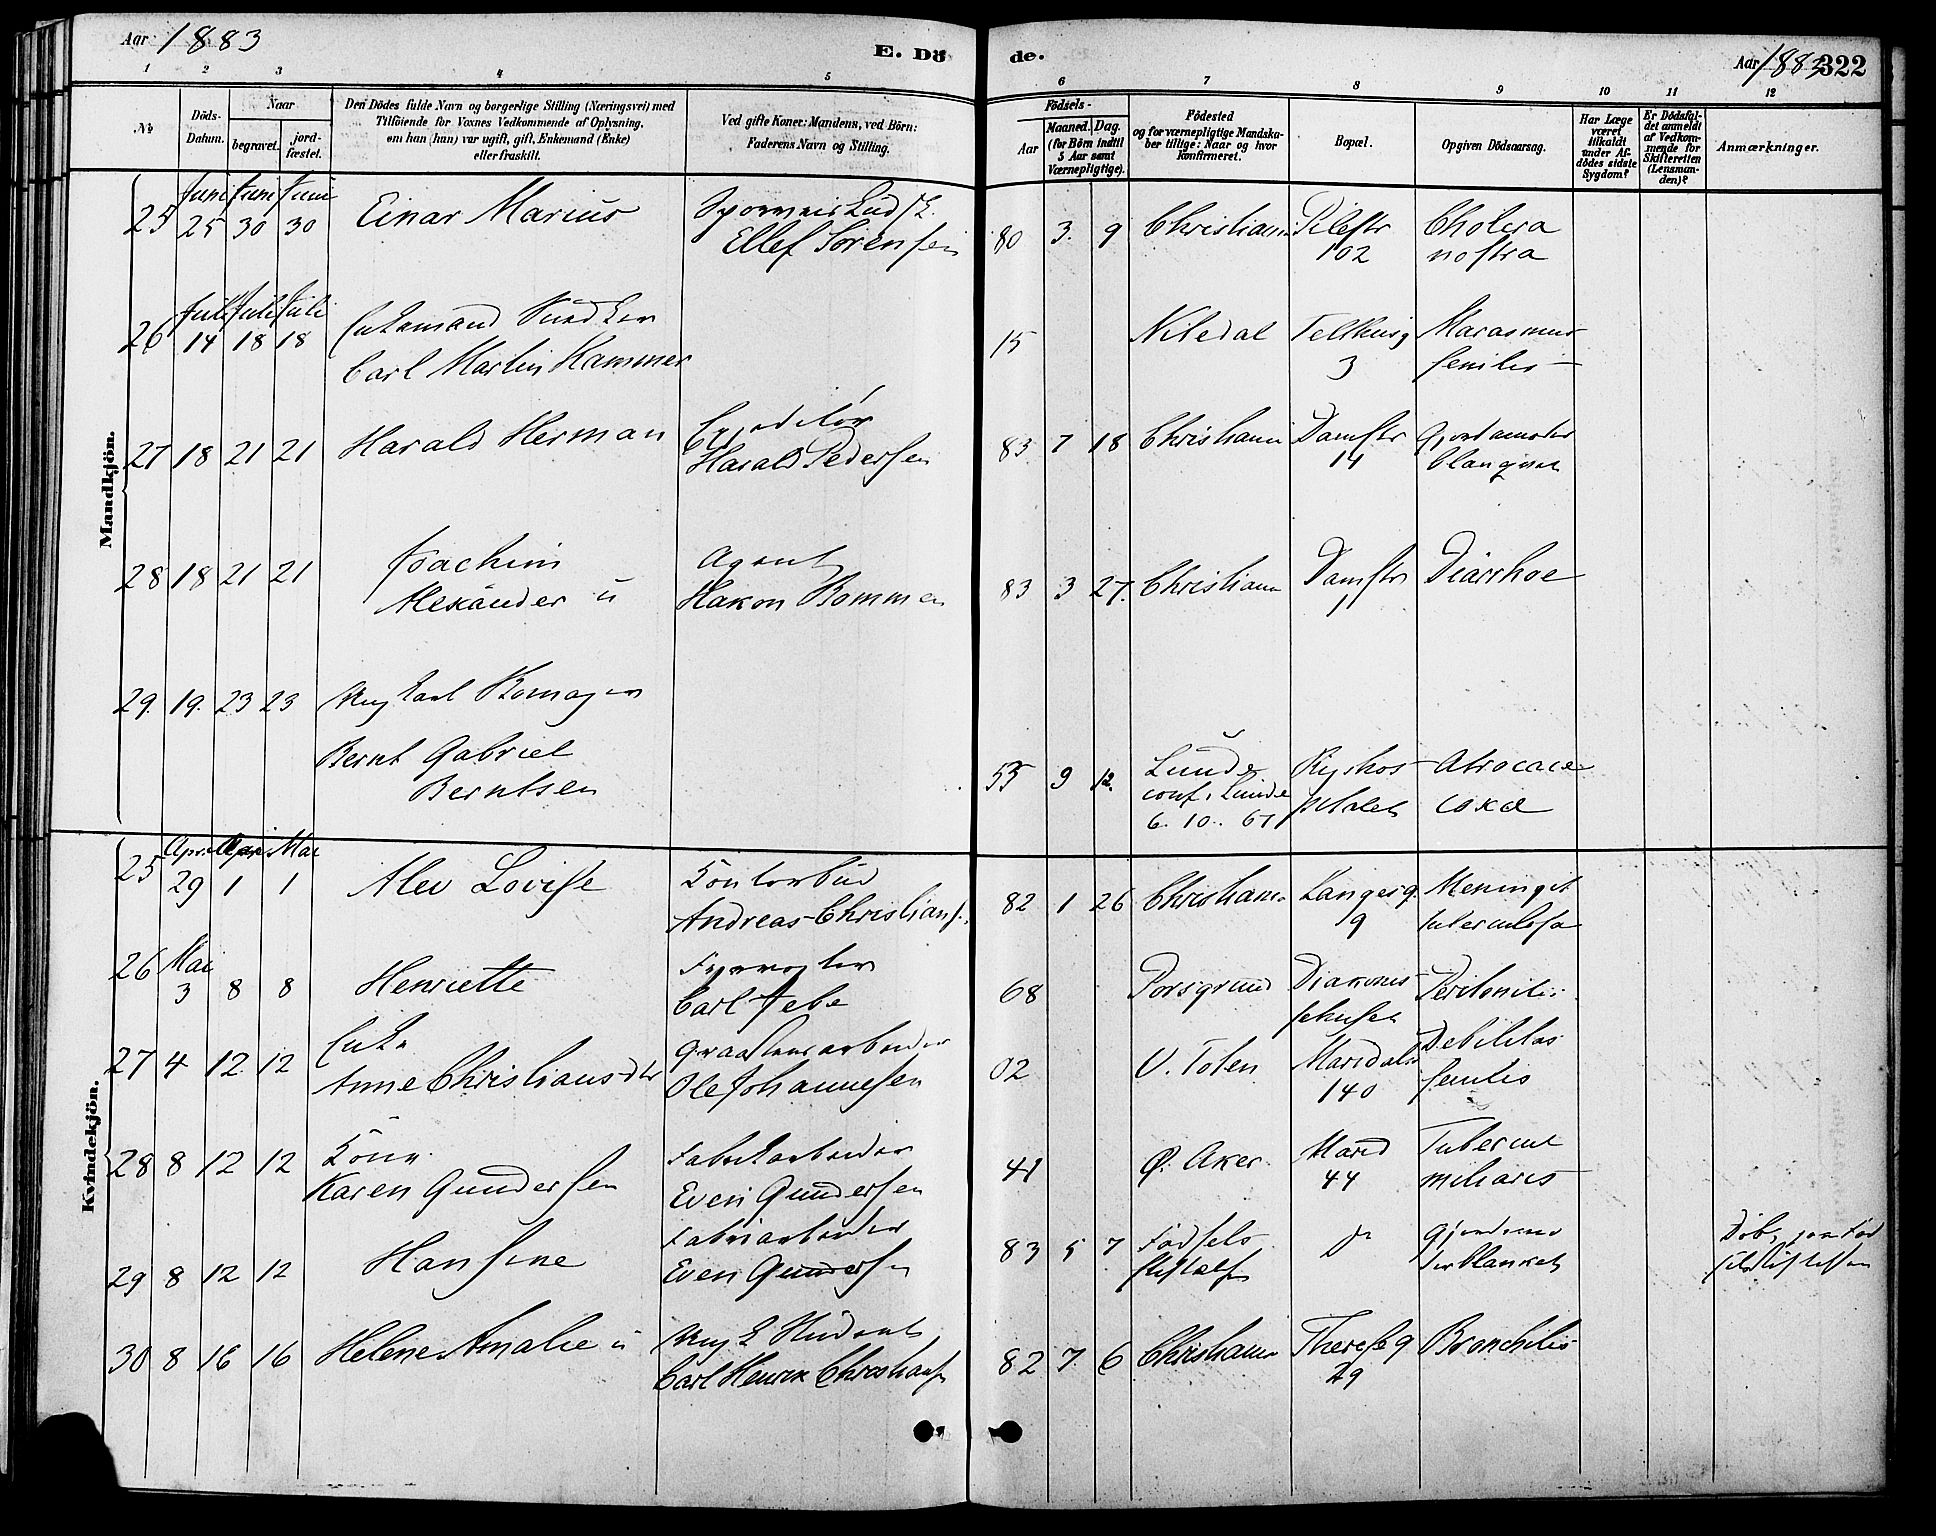 Aar 1883
E. Dö
de.
Aar 1883
322
1 2 3 4 5 6 7 8 9 10 11 12
№
Döds-
Datum.
Naar
begravet.
jord-
fæstet.
Den Dödes fulde Navn og borgerlige Stilling (Næringsvei) med
Tilföiende for Voxnes Vedkommende af Oplysning,
om han (hun) var ugift, gift, Enkemand (Enke)
eller fraskilt.
Ved gifte Koner: Mandens, ved Börn:
Faderens Navn og Stilling.
Födsels-
Aar
Maaned. Dag.
(for Börn indtil
5 Aar samt
Værnepligtige).
Födested
og for værnepligtige Mandska-
ber tillige: Naar og hvor
konfirmeret.
Bopæl.
Opgiven Dödsaarsag.
Har Læge
været
tilkaldt
under Af-
dödes sidste
Sygdom?
Er Dödsfal-
det anmeldt
af Vedkom-
mende for
Skifteretten
(Lensman-
den)?
Anmærkninger.
Mandkjön.
Juni Juni Juni
25 25 30 30 Einar Marius
Ellef Sörensen
80 3. 9 Christiania Pilestr
102
Cholera
nostra
Juli Juli Juli
26 14 18 18 Enkemand
Carl Martin Hammer
15 Nitedal
3
Marasmus
senilis
27 18 21 21 Harald Herman
Harald Pedersen
83 7 18 Christiania Damstr
14
28 18 21 21 Joachim
Alexander u
Agent
Hakon Bommen
83 3 27. Christiania Damstr
1
Diarrhoe
29. 19. 23 23 Ungkarl
Bernt Gabriel
Berntsen
55 9 12. Lunde
conf. Lunde
6. 10. 61
Rigshos
pitalet
coxæ
Kvindekjön.
April Mai
25 29 1 1 Alev Lovise
Kontorbud
Andreas Christians.
82 1 26 Christiania Langesg.
9
Meningit
tuberculosa
26 Mai
3 8 8 Henriette
Carl Jebe
68 Porsgrund Diakonis
sehuset
Peritonitis
27 4 12 12 Enke
Anne Christiansdtr
Ole Johannesen
02 V. Toten Maridals
140
Debilitas
senilis
28 8 12 12 Kone
Karen Gundersen
Fabrikarbeider
Even Gundersen
41 Ø. Aker. Marid
44
Tubercul
miliaris
29 8 12 12 Hansine
Fabrikarbeider
Even Gundersen
83 5 7 Fødsels
stiftelsen
do
30 8 16 16 Helene Amalie u
Ungk Student
Carl Henrik Christians
82 7. 6 Christiania Thereseg
29
Bronchitis